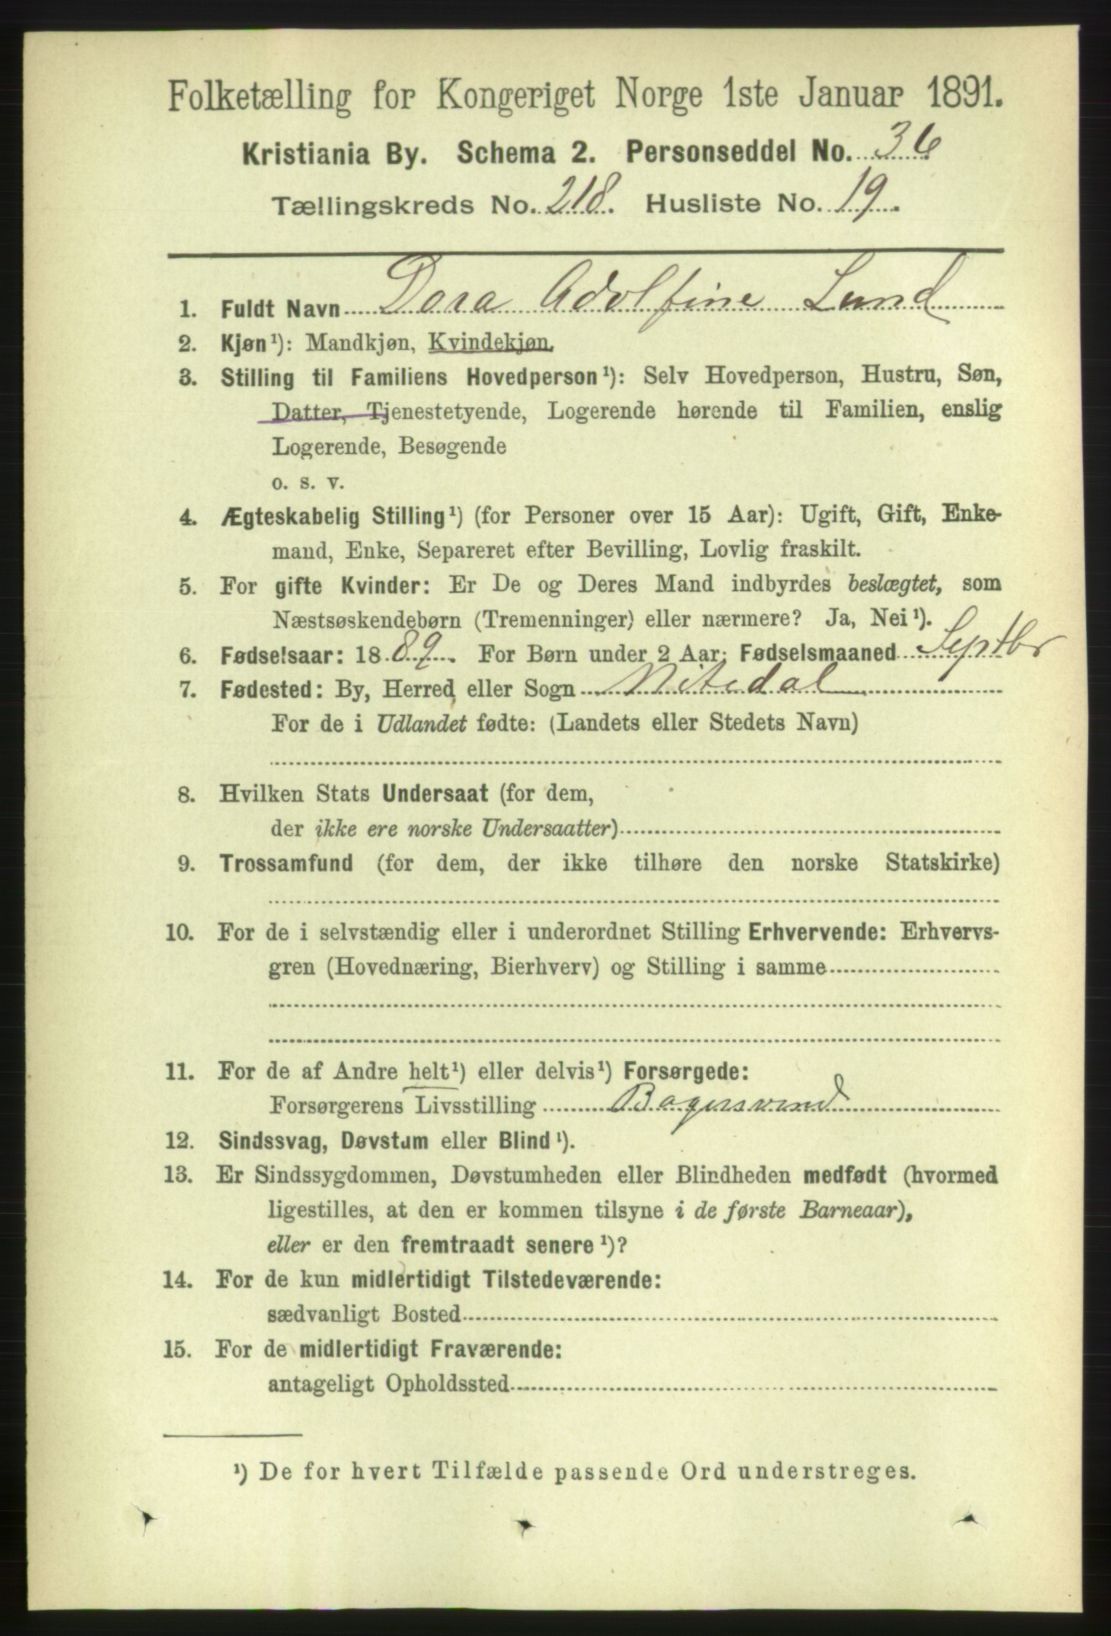 Folketælling for Kongeriget Norge 1ste Januar 1891.
Kristiania By. Schema 2. Personseddel No. 36
Tællingskreds No. 218. Husliste No. 19.
1. Fuldt Navn Dora Adolfine Lund
2. Kjøn¹): Mandkjøn, Kvindekjøn.
3. Stilling til Familiens Hovedperson¹): Selv Hovedperson, Hustru, Søn,
Datter, Tjenestetyende, Logerende hørende til Familien, enslig
Logerende, Besøgende
o. s. v.
4. Ægteskabelig Stilling¹) (for Personer over 15 Aar): Ugift, Gift, Enke-
mand, Enke, Separeret efter Bevilling, Lovlig fraskilt.
5. For gifte Kvinder: Er De og Deres Mand indbyrdes beslægtet, som
Næstsøskendebørn (Tremenninger) eller nærmere? Ja, Nei¹).
6. Fødselsaar: 1889. For Børn under 2 Aar: Fødselsmaaned Septbr
7. Fødested: By, Herred eller Sogn Nitedal
For de i Udlandet fødte: (Landets eller Stedets Navn)
8. Hvilken Stats Undersaat (for dem,
der ikke ere norske Undersaatter)
9. Trossamfund (for dem, der ikke tilhøre den norske Statskirke)
10. For de i selvstændig eller i underordnet Stilling Erhvervende: Erhvervs-
gren (Hovednæring, Bierhverv) og Stilling i samme
11. For de af Andre helt¹) eller delvis¹) Forsørgede:
Forsørgerens Livsstilling Bagersvend
12. Sindssvag, Døvstum eller Blind¹).
13. Er Sindssygdommen, Døvstumheden eller Blindheden medfødt (hvormed
ligestilles, at den er kommen tilsyne i de første Barneaar),
eller er den fremtraadt senere¹)?
14. For de kun midlertidigt Tilstedeværende:
sædvanligt Bosted
15. For de midlertidigt Fraværende:
antageligt Opholdssted
¹) De for hvert Tilfælde passende Ord understreges.